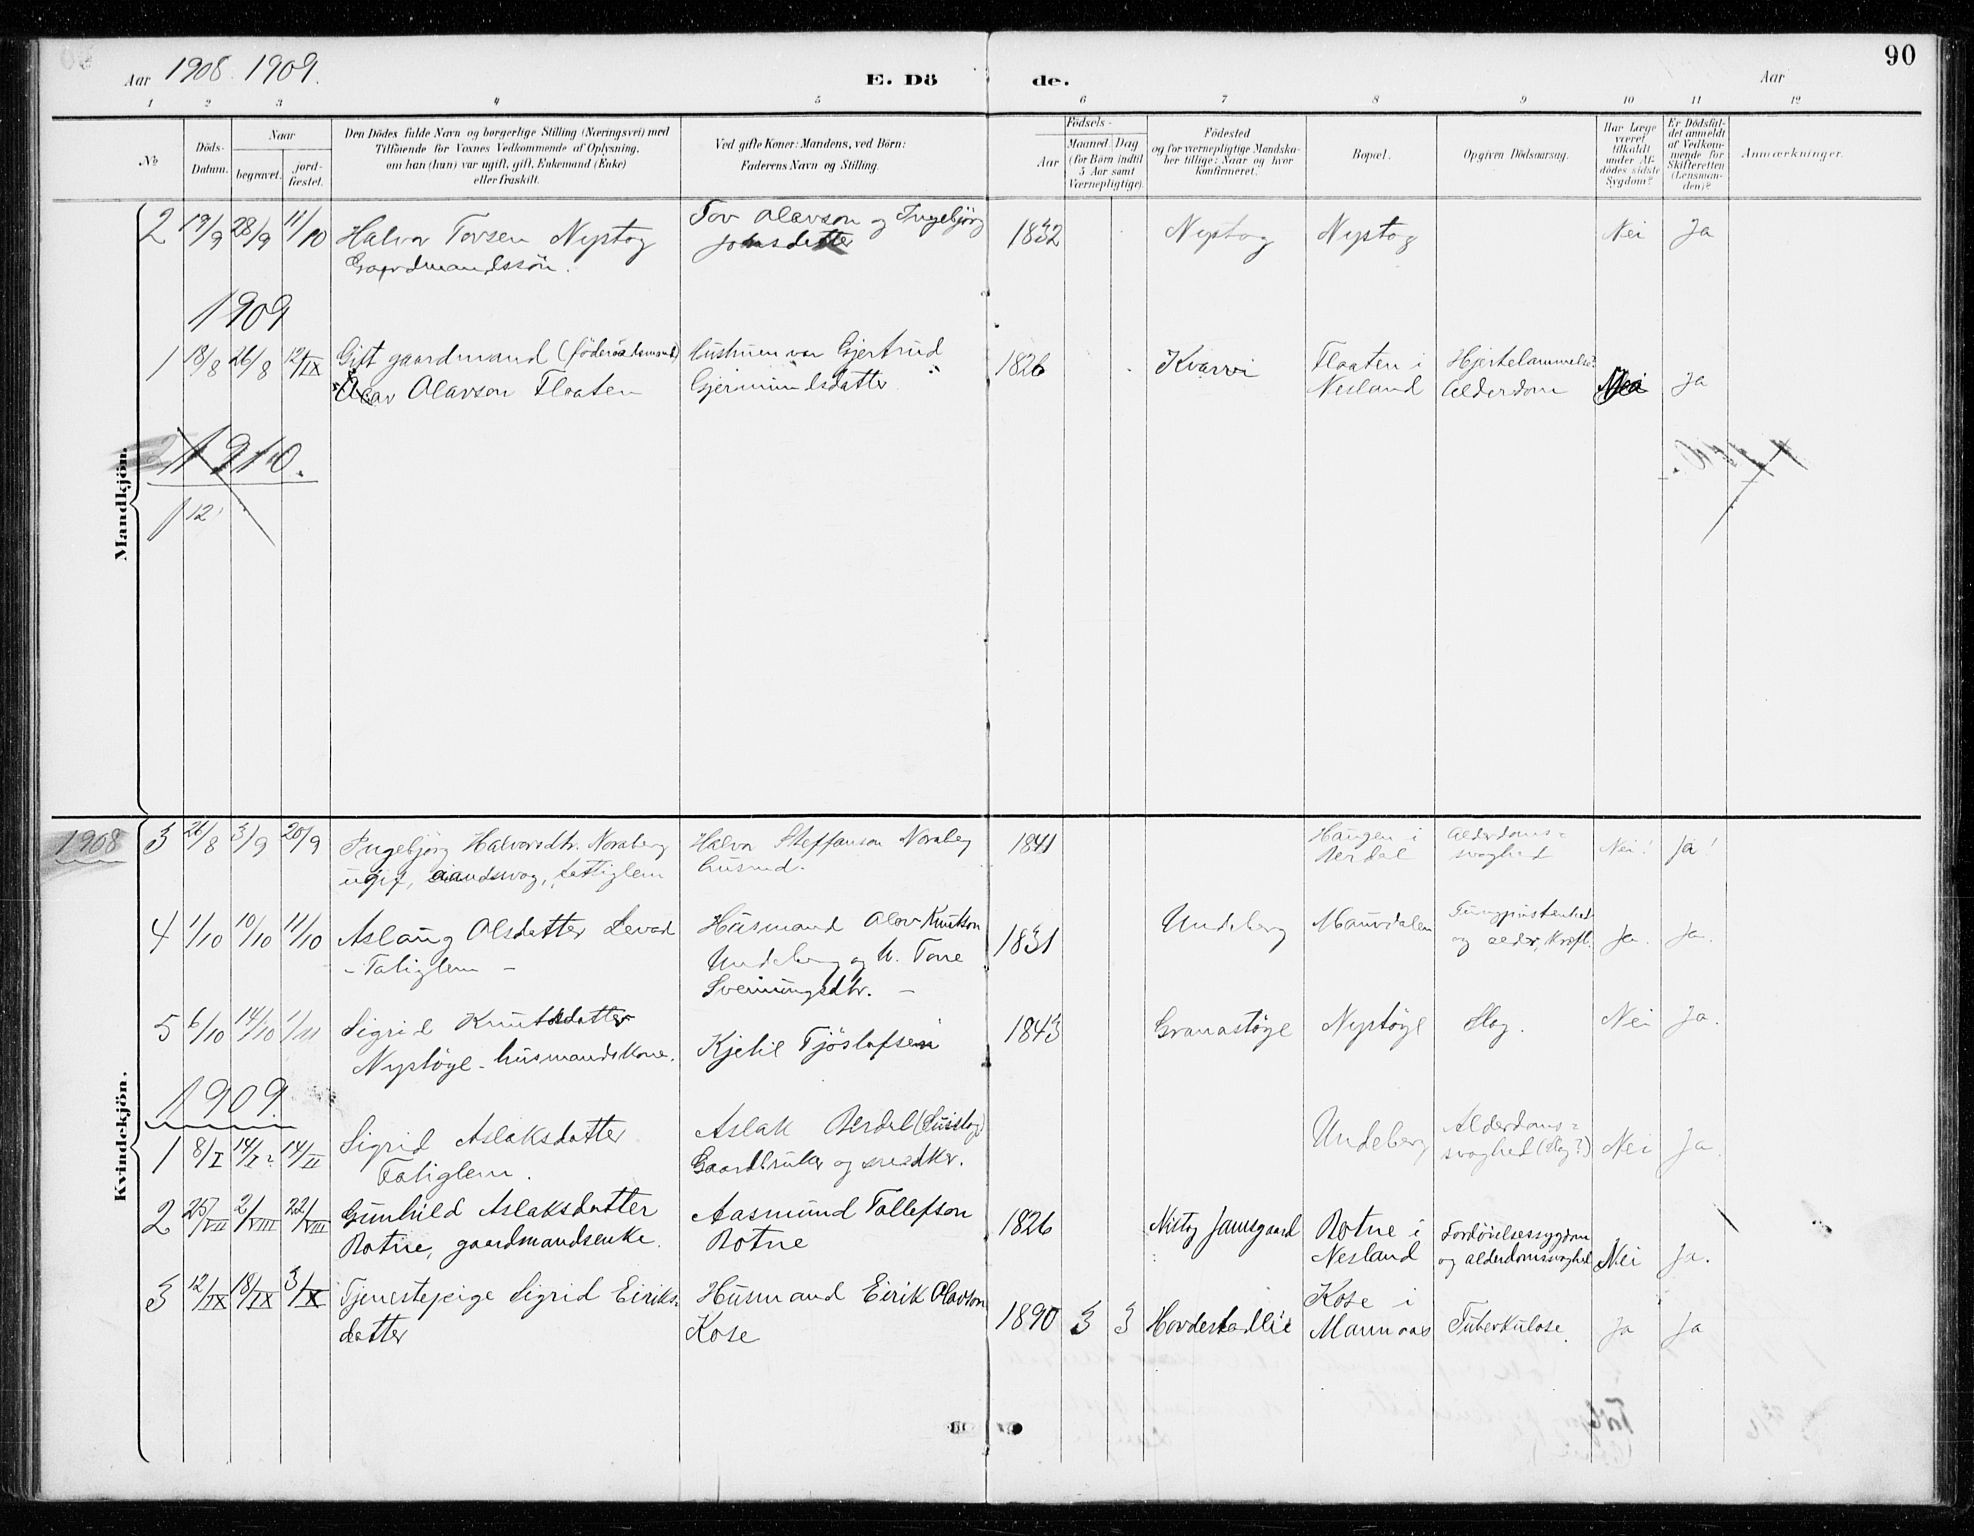 90
Aar 1908. 1909.
E. Dö de.
Aar
1 2 3 4 5 6 7 8 9 10 11 12
No
Döds-
Datum.
Naar
begravet.
jord-
fæstet.
Den Dödes fulde Navn og borgerlige Stilling (Næringsvei) med
Tilföiende for Voxnes Vedkommende af Oplysning,
om han (hun) var ugift, gift, Enkemand (Enke)
eller fraskilt.
Ved gifte Koner: Mandens, ved Börn:
Faderens Navn og Stilling.
Födsels-
Aar
Maaned Dag
(for Börn indtil
5 Aar samt
Værnepligtige).
Födested
og for værnepligtige Mandska-
ber tillige: Naar og hvor
konfirmeret.
Bopæl.
Opgiven Dödsaarsag.
Har Læge
været
tilkaldt
under Af-
dödes sidste
Sygdom?
Er Dödsfal-
det anmeldt
af Vedkom-
mende for
Skifteretten
(Lensman-
den)?
Anmærkninger.
Mandkjön.
2 19/9 28/9 11/10 Halvor Tovsen Nystog
Gaardmandssön.
Tov Olavson og Ingebjörg
Johsdatter
1832 Nystog Nystog Nei Ja
1909
1 18/8 26/8 12/IX Gift gaardmand (föderaadsmand)
Olav Olavson Flaaten
Hustruen var Gjertrud
Gjermundsdatter
1826 Kvarvi Flaaten i
Nesland
Alderdom
Ja
1910.
1 12
Kvindekjön.
1908
3 26/8 3/9 20/9 Ingebjörg Halvorsdtr. Norsberg
ugift, aandsvag, fattiglem
Halvor Steffanson Norsberg
husmd.
1841 Haugen i
Berdal
Alderdoms=
svaghed
Nei! Ja!
4 1/10 10/10 11/10 Aslaug Olsdatter Levad
- Fatiglem -
Husmand Olav Knutson
Undeberg og h. Tone
Sveinungsdtr. -
1831 Undeberg Mauvdalen
og alder, Ja. Ja.
5 6/10 14/10 1/11 Sigrid Knutsdatter
Nystöyl - husmandskone.
Kjetil Tjöstolfsen
1843 Granastöyl Nystöyl Slag. Nei Ja.
1909.
1 8/I 14/I 14/II Sigrid Aslaksdatter
Fatiglem.
Aslak Berdal
Gaardbruker og snedker.
Undeberg Alderdoms=
svaghed (Slag?) Nei Ja.
2 25/VII 2/VIII 22/VIII Gunhild Aslaksdatter
Botne, gaardmandsenke.
Aasmund Tollefson
Botne
1826 Nistog Jamsgaard Botne i
Nesland
Fordöielsessygdom
og alderdomssvaghed Nei Ja.
3 12/IX 18/IX 3/X Tjenestepige Sigrid Eiriks=
datter
Husmand Eirik Olavson
Kose
1890 3 3 Hovdestadlie Kose i
Mannaas
Tuberkulose. Ja Ja